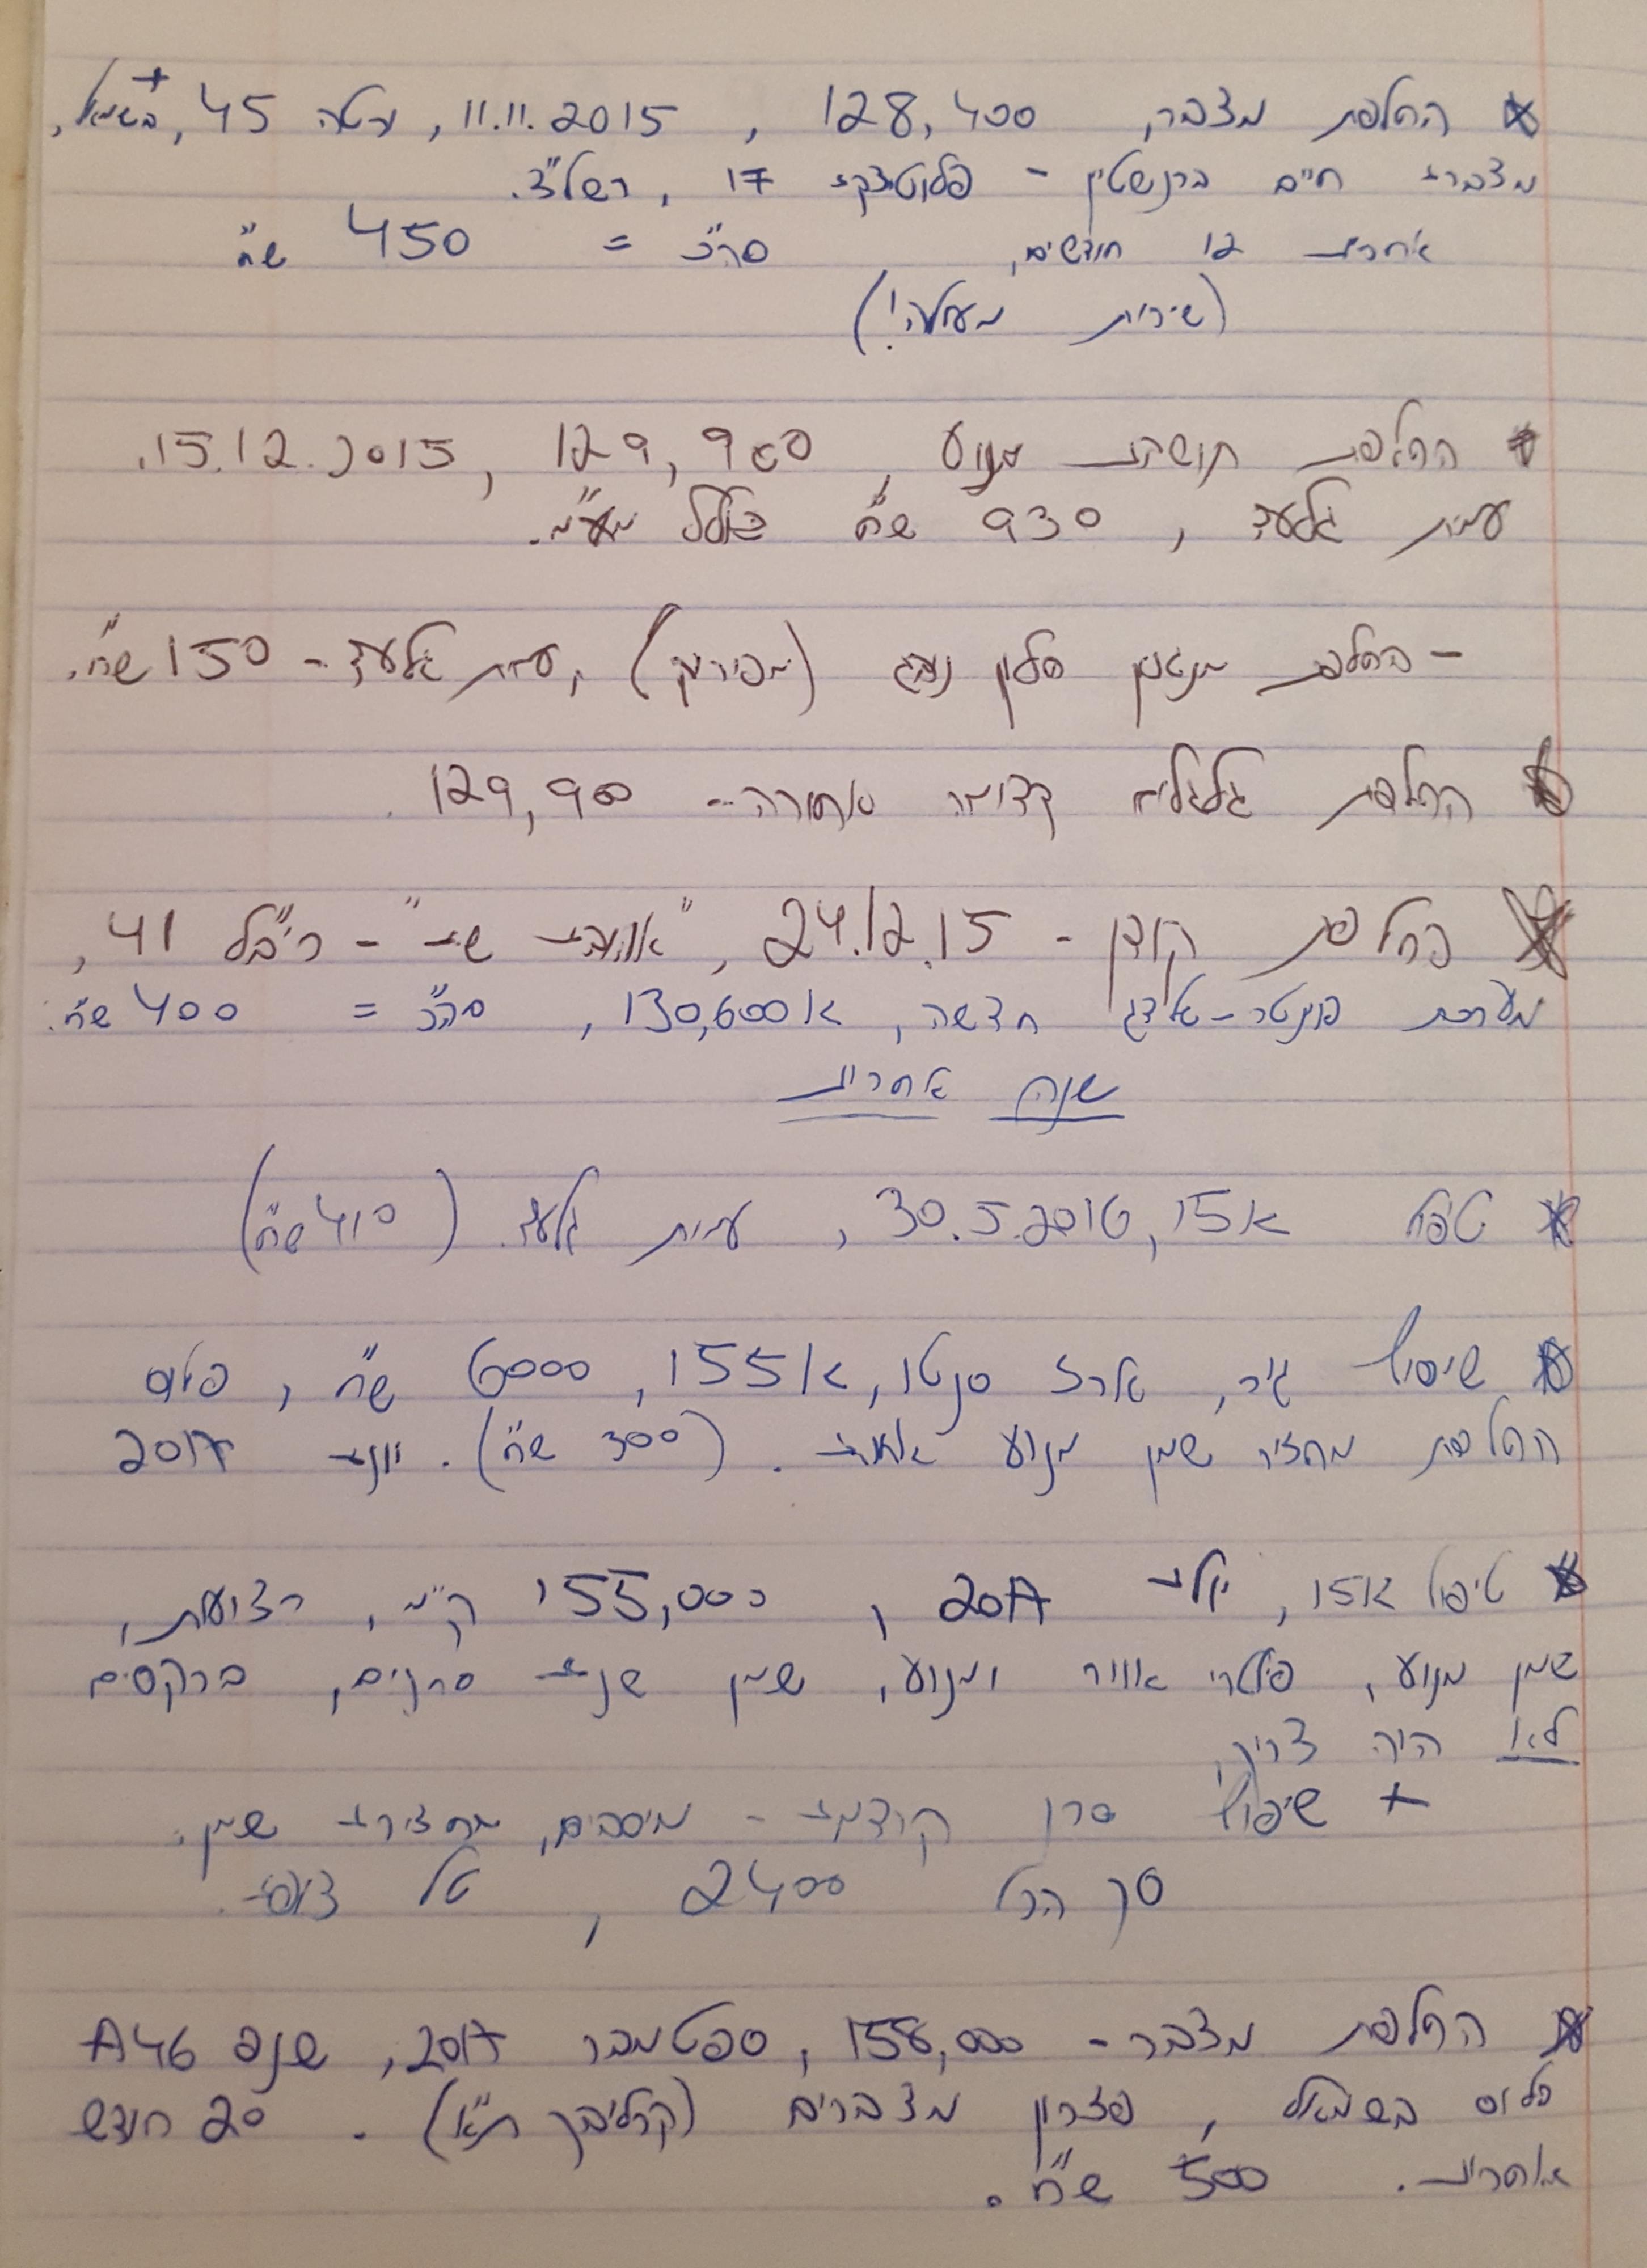 * החלפת מצבר, 128,400, 11.11.2015, ורטה 45, + בשמאל,
מצברי חיים ברנשטיין - פלוטיצקי 17, רשל"צ.
אחריות 12 חודשים, סה"כ = 450 ש"ח
(שירות מעולה!)
* החלפת תושבת מנוע, 129,900, 15.12.2015.
עמית גלעד, 930 ש"ח כולל מע"מ.
- החלפת מנגנון חלון נהג (מפירוק), עמית גלעד - 150 ש"ח.
* החלפת גלגלים קדימה אחורה - 129,900.
* החלפת קודן - 24.12.15, "אוהבי שי" - ריב"ל 41,
מערכת פוינטר - אלדג חדשה, 130,600א, סה"כ = 400 ש"ח.
שנה אחריות
* טיפול 15א, 30.5.2016, עמית גלעד. (410 ש"ח)
* שיפוץ גיר, ארז סנטו, 155א, 6000 ש"ח, פלוס
החלפת מחזיר שמן מנוע אחורי. (300 ש"ח). יוני 2017
* טיפול 15א, יולי 2017, 155,000 ק"מ, רצועות,
שמן מנוע, פילטרי אוויר ומנוע, שמן שני סרנים, ברקסים
לא היה צריך,
+ שיפוץ סרן קודמי - מיסבים, מחזירי שמן.
סך הכל 2400, טל צופי.
* החלפת מצבר - 158,000, ספטמבר 2017, שנפ 46A
פלוס בשמאל, פתרון מצברים (קרליבך ת"א). 20 חודש
אחריות. 500 ש"ח.